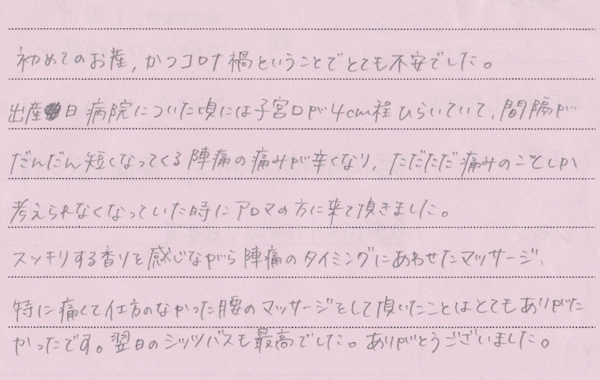 初めてのお産,かつコロナ禍ということでとても不安でした。
出産日病院についた頃には子宮口が4cm程ひらいていて,間隔が
だんだん短くなってくる陣痛の痛みが辛くなり,ただただ痛みのことしか
考えられなくなっていた時にアロマの方に来て頂きました。
スッキリする香りを感じながら陣痛のタイミングにあわせたマッサージ、
特に痛くて仕方のなかった腰のマッサージをして頂いたことはとてもありがた
かったです。翌日のシッツバスも最高でした。ありがとうございました。